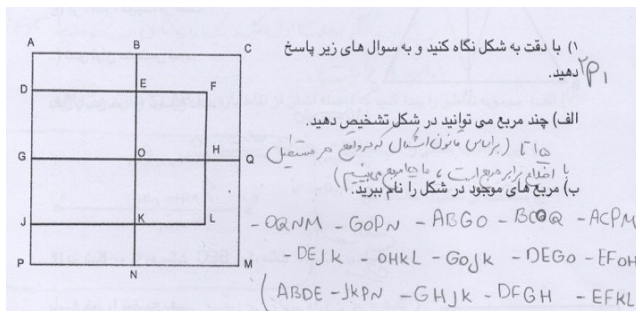 A B C
D E F
G O H Q
J K L
P N M
۱) با دقت به شکل نگاه کنید و به سوال های زیر پاسخ
دهید.
2P1
الف) چند مربع می توانید در شکل تشخیص دهید.
۱۵ تا (براساس قانون اشکال که در واقع هر مستطیل
با اضلاع برابر مربع است، ما ۱۵ مربع می بینیم)
ب) مربع های موجود در شکل را نام ببرید.
- OQNM - GOPN - ABGO - BCOQ - ACPM
- DEJK - OHKL - GOJK - DEGO - EFOH
(ABDE - JKPN - GHJK - DFGH - EFKL